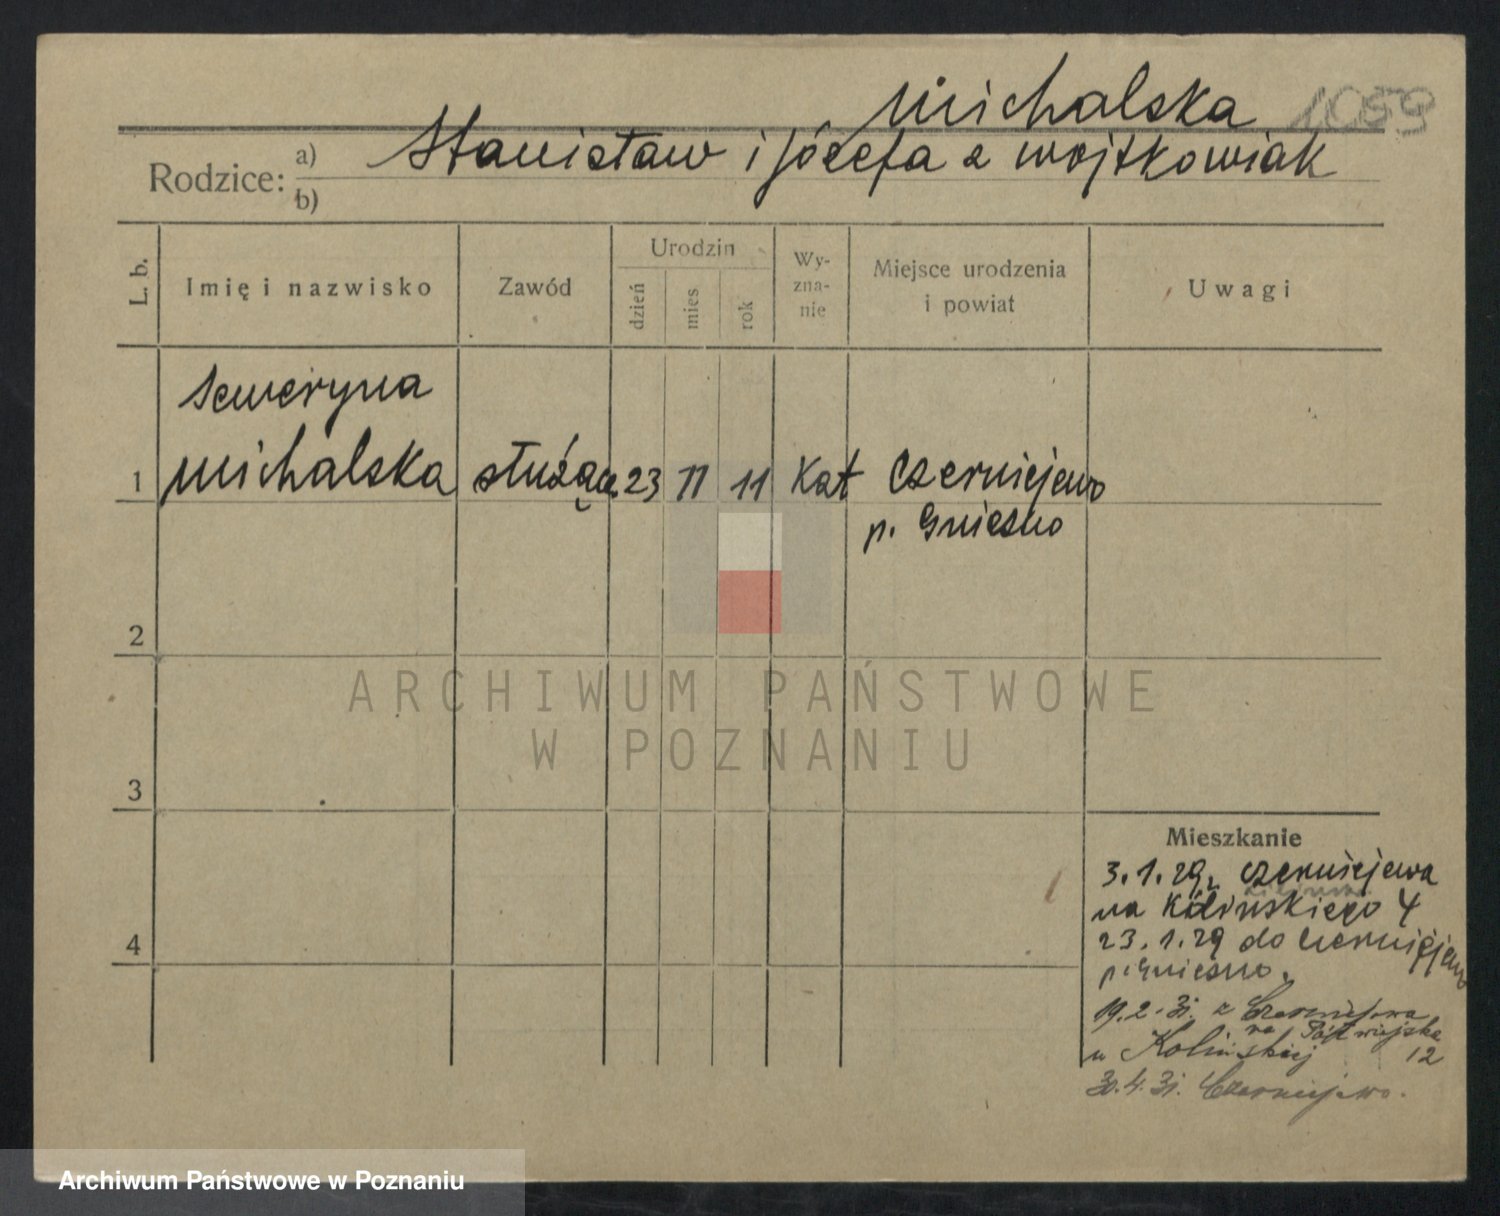 Michalska 1059
Rodzice: a) Stanisław i Józefa z Wojtkowiak
b)
L. b.
Imię i nazwisko
Zawód
Urodzin
dzień
mies
rok
Wy-
zna-
nie
Miejsce urodzenia
i powiat
Uwagi
Seweryna
1 Michalska służąca 23 11 11 Kat Czerniejewo
p. Gniezno
2
ARCHIWUM PAŃSTWOWE
W POZNANIU
3
Mieszkanie
3.1.29 z Czerniejewa
na Kolinskiego 4
4
23.1.29 do Czerniejewo
p. Gniezno.
19.2.31. z Czerniejewa
na Półwiejska
u Kolinskiej 12
30.4.31. Czerniejewo.
Archiwum Państwowe w Poznaniu